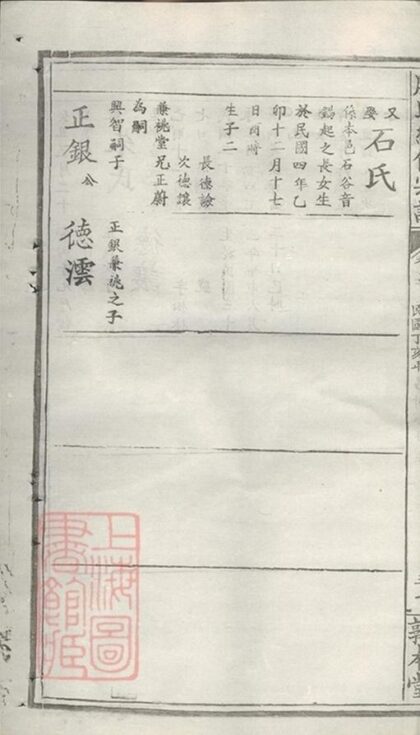 又
娶石氏
係本邑石谷音
鶴起之長女生
於民國四年乙
卯十二月十七
日酉時
生子二
長德諭
次德讓
兼祧堂兄正蔚
為嗣
興智嗣子
正銀 公
正銀兼祧之子
德澐
敦本堂
上海圖
書館藏